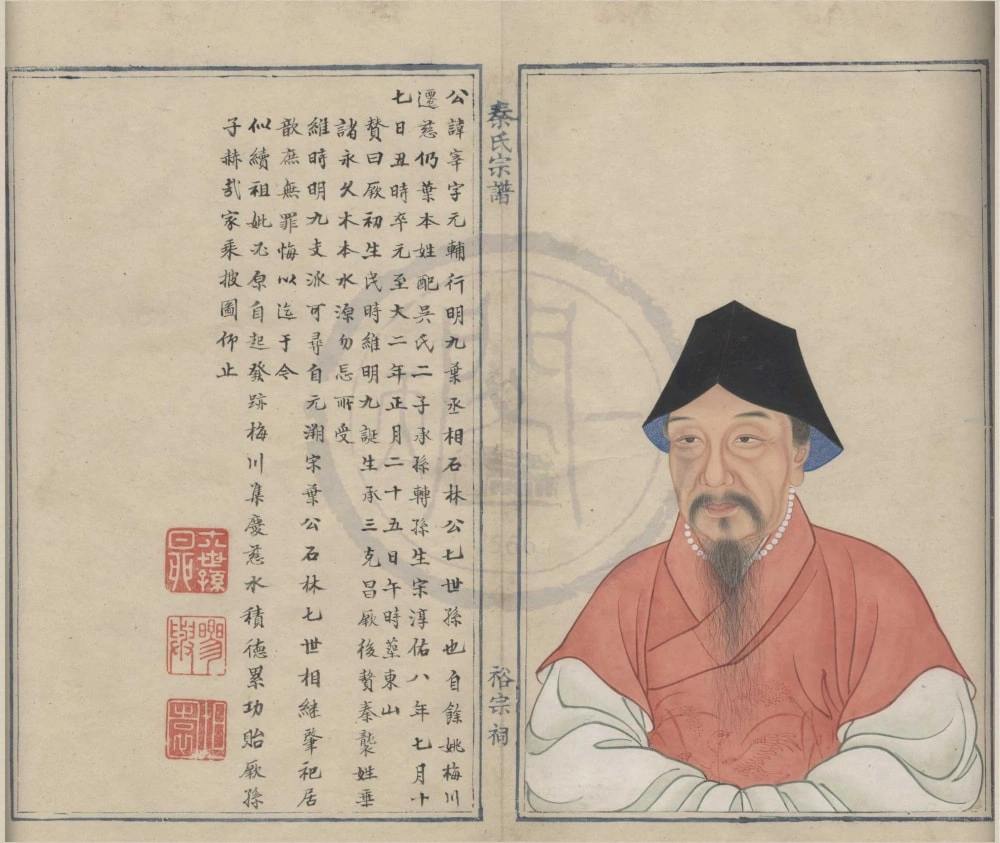 秦氏宗譜
裕宗祠
公諱宰字元輔行明九葉丞相石林公七世孫也自餘姚梅川
遷慈仍葉本姓配吳氏二子承孫轉孫生宋淳佑八年七月十
七日丑時卒元至大二年正月二十五日午時塟東山
贊曰厥初生民時維明九誕生承三克昌厥後贅秦襲姓垂
諸永久木本水源勿忘所受
維時明九支派可尋自元溯宋葉公石林七世相繼肇祀居
歆庶無罪悔以迄于今
似續祖妣丕原自起發跡梅川集慶慈水積德累功貽厥孫
子赫哉家乘披圖仰止